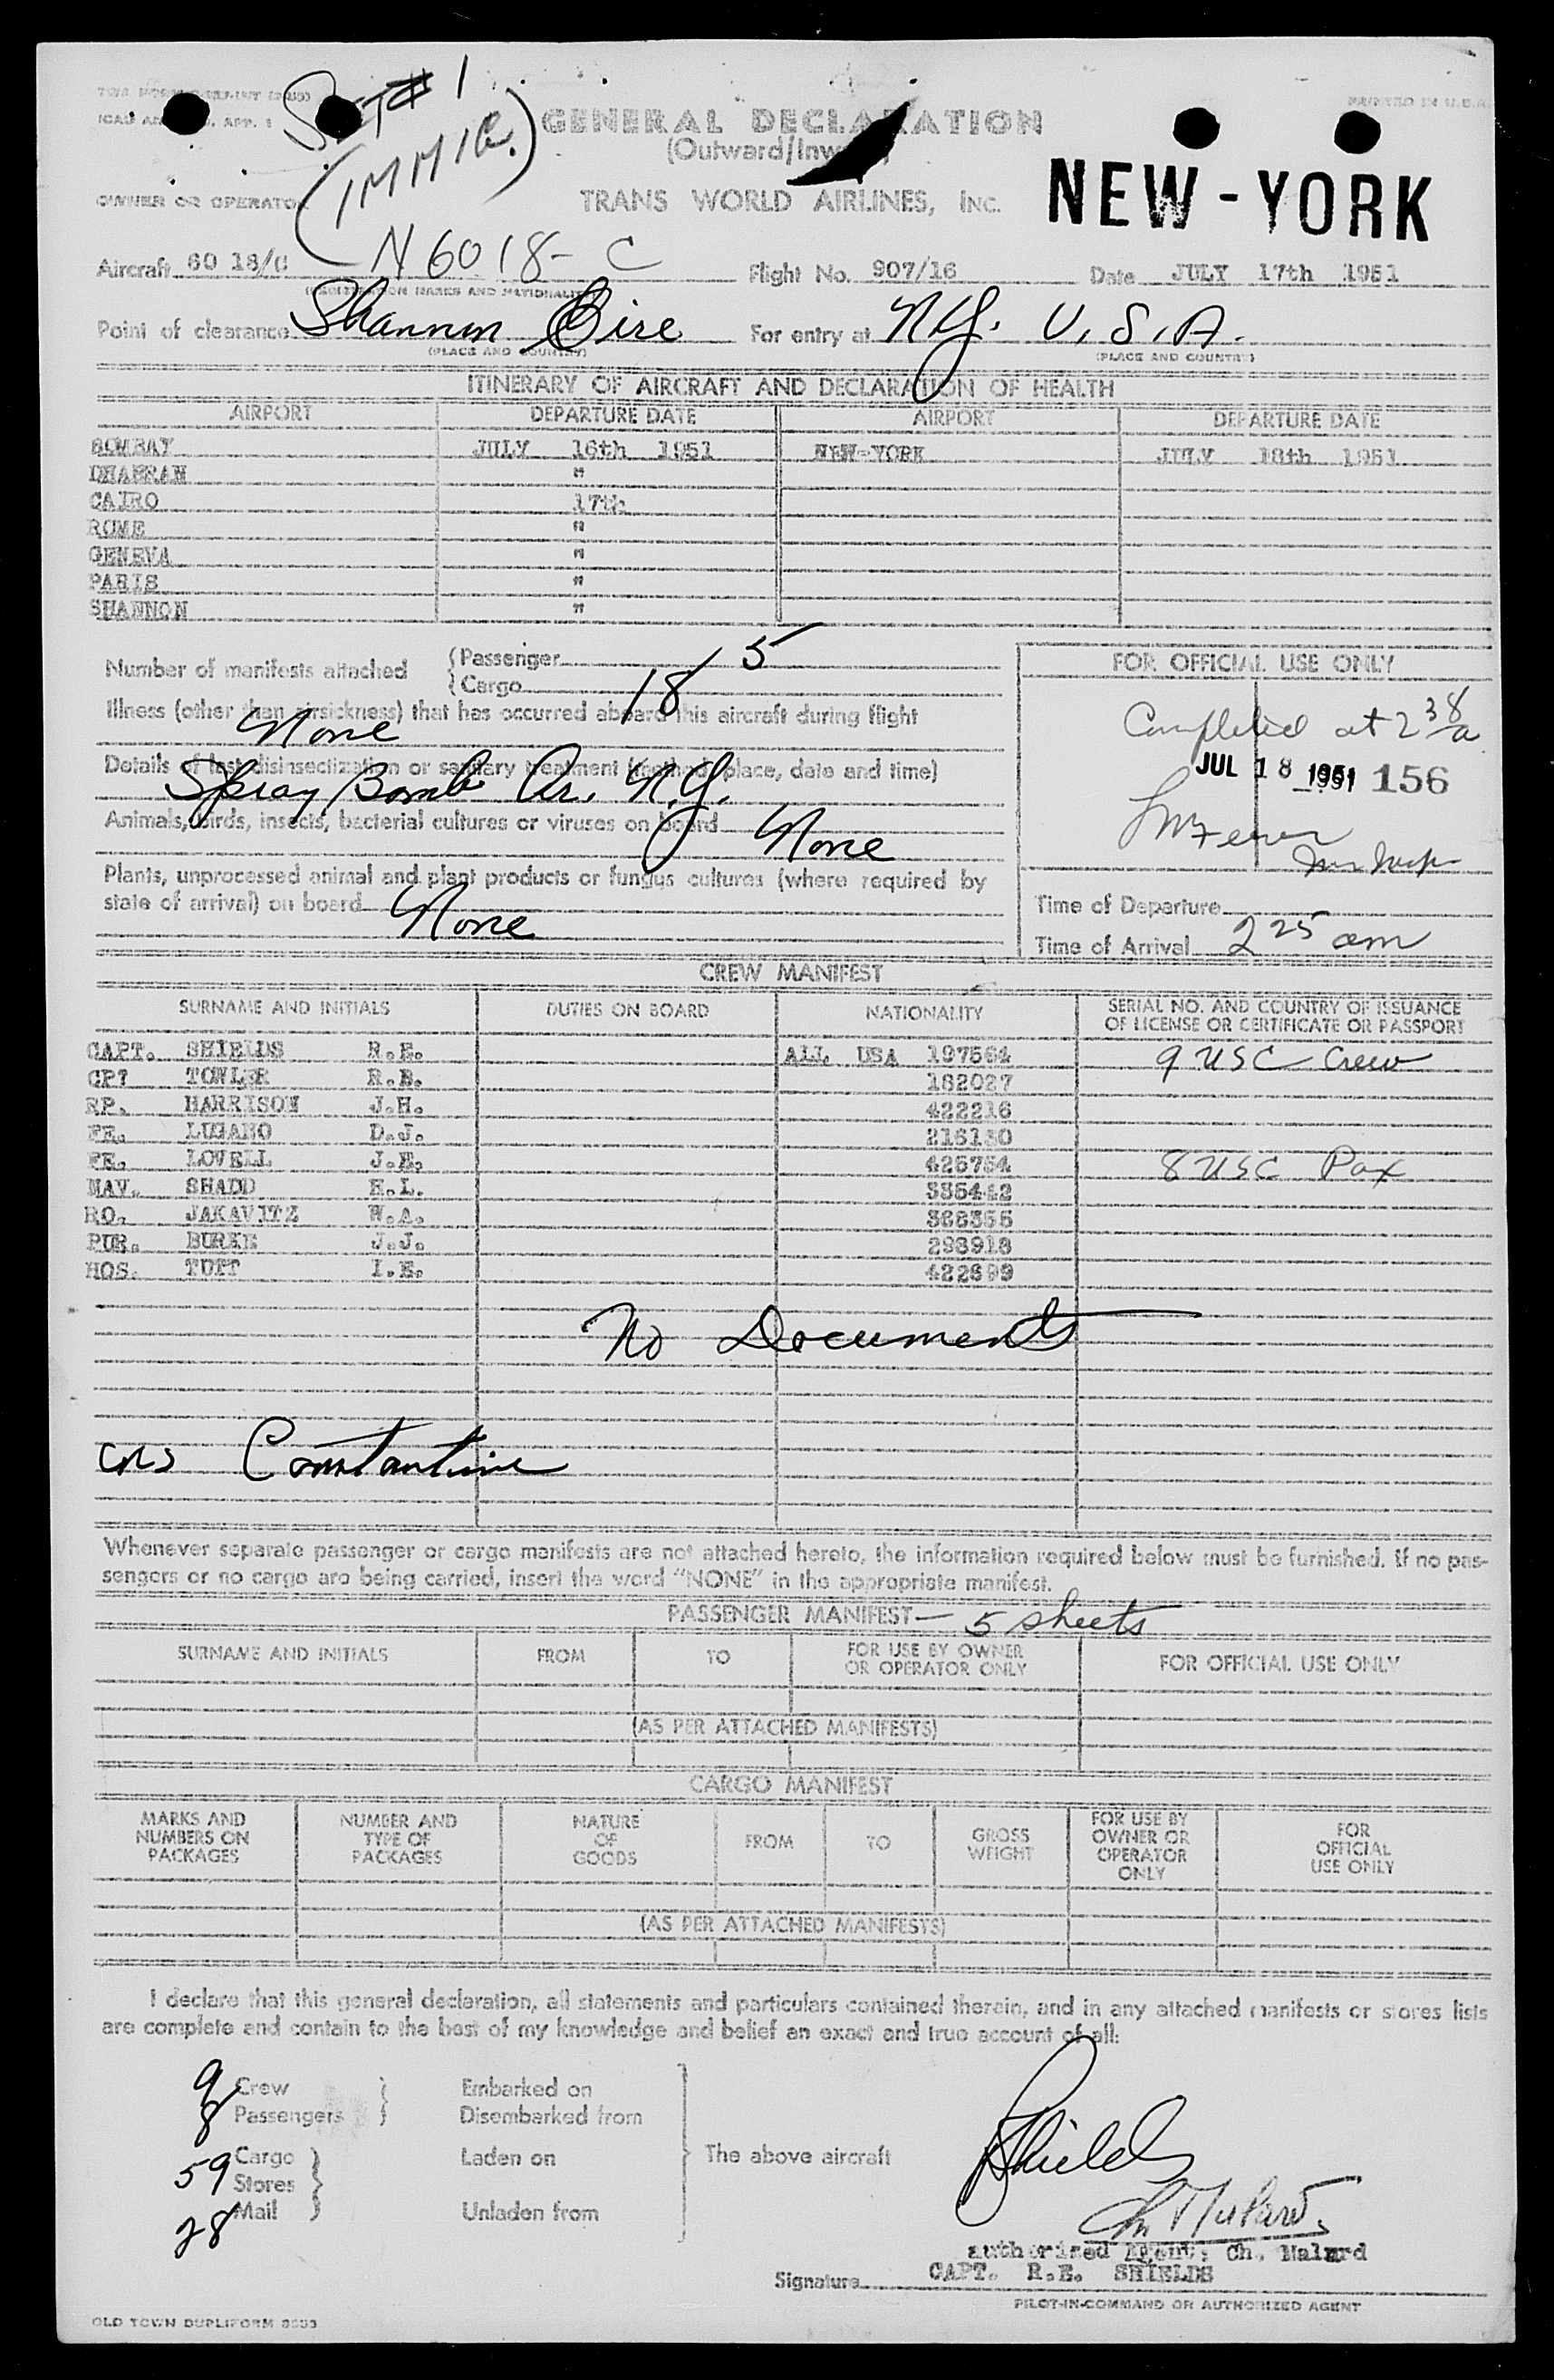 SET # 1
(IMMIG.)
PRINTED IN U.S.A.
GENERAL DECLARATION
(Outward/Inward)
OWNER OR OPERATOR
TRANS WORLD AIRLINES, INC.
NEW-YORK
Aircraft 60 18/C N6018-C Flight No. 907/16 Date JULY 17th 1951
(REGISTRATION MARKS AND NATIONALITY)
Point of clearance Shannon Eire For entry at N.Y. U.S.A.
(PLACE AND COUNTRY) (PLACE AND COUNTRY)
ITINERARY OF AIRCRAFT AND DECLARATION OF HEALTH
AIRPORT DEPARTURE DATE AIRPORT DEPARTURE DATE
BOMBAY JULY 16th 1951 NEW-YORK JULY 18th 1951
DHAHRAN "
CAIRO 17th
ROME "
GENEVA "
PARIS "
SHANNON "
Number of manifests attached
Passenger 5
Cargo 18
Illness (other than airsickness) that has occurred aboard this aircraft during flight
None
Details of last disinsectization or sanitary treatment (method, place, date and time)
Spray Bomb Ar. N.Y.
Animals, birds, insects, bacterial cultures or viruses on board None
Plants, unprocessed animal and plant products or fungus cultures (where required by
state of arrival) on board None
FOR OFFICIAL USE ONLY
Completed at 2 38 a
JUL 18 1951 156
Time of Departure
Time of Arrival 2 25 am
CREW MANIFEST
SURNAME AND INITIALS DUTIES ON BOARD NATIONALITY SERIAL NO. AND COUNTRY OF ISSUANCE
OF LICENSE OR CERTIFICATE OR PASSPORT
CAPT. SHIELDS R.E. ALL USA 197564 9 USC Crew
CP? TOWLER R.B. 182027
RP. HARRISON J.H. 422216
FE. LUGANO D.J. 216130
FE. LOVELL J.E. 426754 8 USC Pax
NAV. SHADD E.L. 335442
RO. JAKAVITZ W.A. 366355
PUR. BURKE J.J. 298918
HOS. TUFT I.E. 422699
No Documents
CNS Constantine
Whenever separate passenger or cargo manifests are not attached hereto, the information required below must be furnished. If no pas-
sengers or no cargo are being carried, insert the word "NONE" in the appropriate manifest.
PASSENGER MANIFEST — 5 sheets
SURNAME AND INITIALS FROM TO FOR USE BY OWNER OR OPERATOR ONLY FOR OFFICIAL USE ONLY
(AS PER ATTACHED MANIFESTS)
CARGO MANIFEST
MARKS AND NUMBERS ON PACKAGES NUMBER AND TYPE OF PACKAGES NATURE OF GOODS FROM TO GROSS WEIGHT FOR USE BY OWNER OR OPERATOR ONLY FOR OFFICIAL USE ONLY
(AS PER ATTACHED MANIFESTS)
I declare that this general declaration, all statements and particulars contained therein, and in any attached manifests or stores lists
are complete and contain to the best of my knowledge and belief an exact and true account of all:
9 Crew Embarked on
8 Passengers Disembarked from
59 Cargo Laden on The above aircraft Shields
Stores
28 Mail Unladen from
authorized Agent: Ch. Malard
Signature CAPT. R.E. SHIELDS
PILOT-IN-COMMAND OR AUTHORIZED AGENT
OLD TOWN DUPLIFORM